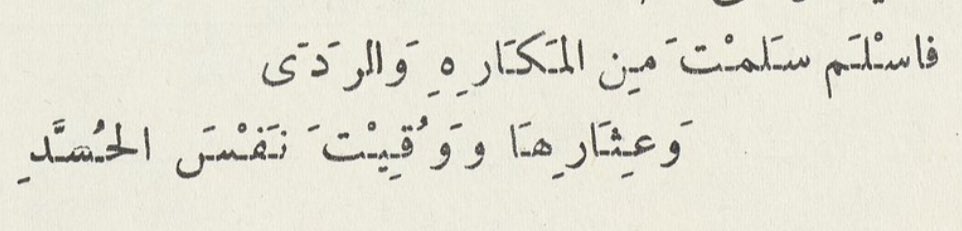 فاسْلَم سَلمْتَ مِن المَكَارِهِ وَالرَدَى
وَعِثَارِهَا وَوُقِيْتَ نَفْسَ الحُسَّدِ